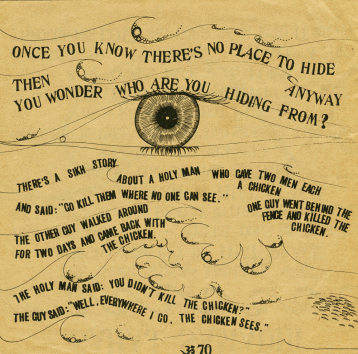 ONCE YOU KNOW THERE'S NO PLACE TO HIDE
THEN
YOU WONDER WHO ARE YOU HIDING FROM?
ANYWAY
THERE'S A SIKH STORY
ABOUT A HOLY MAN WHO GAVE TWO MEN EACH
A CHICKEN
AND SAID: "GO KILL THEM WHERE NO ONE CAN SEE."
ONE GUY WENT BEHIND THE
FENCE AND KILLED THE
CHICKEN.
THE OTHER GUY WALKED AROUND
FOR TWO DAYS AND CAME BACK WITH
THE CHICKEN.
THE HOLY MAN SAID: YOU DIDN'T KILL THE CHICKEN?"
THE GUY SAID: "WELL, EVERYWHERE I GO, THE CHICKEN SEES."
ॐ 70